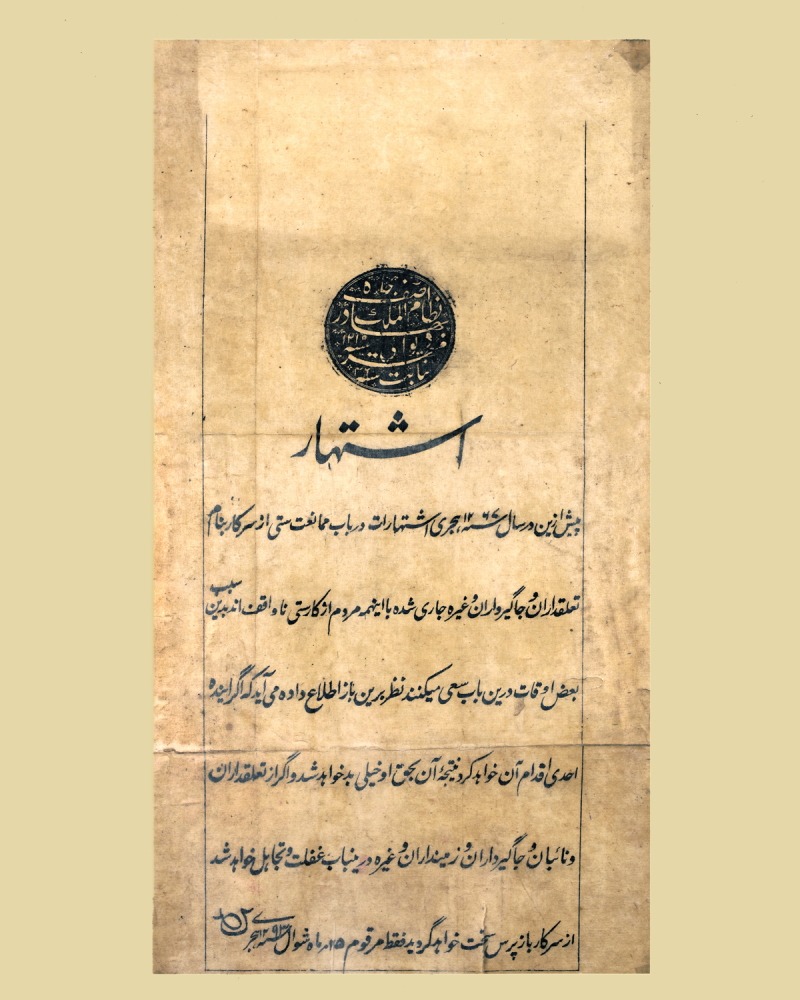 آصف جاه
نظام الملک
بهادر
اشتهار
پیش ازین در سال سنه ۱۲۶۷ هجری اشتهارات در باب ممانعت ستی از سرکار بنام
تعلقداران و جاگیرداران و غیره جاری شده با اینهمه مردم از کار ستی ناواقف اند بدین سبب
بعض اوقات درین باب سعی میکنند نظر برین باز اطلاع داده می آید که اگر آینده
احدی اقدام آن خواهد کرد نتیجهٔ آن بحق او خیلی بد خواهد شد و اگر از تعلقداران
و نائبان و جاگیرداران و زمینداران و غیره درینباب غفلت و تجاهل خواهد شد
از سرکار بازپرس سخت خواهد گردید فقط مرقوم ۲۵ ماه شوال سنه ۱۲۹۳ هجری